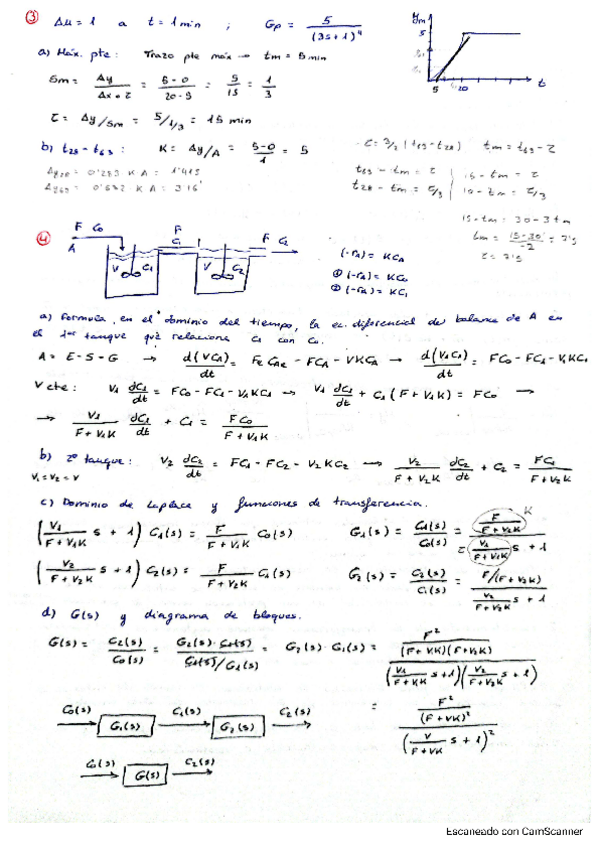 ③ Δu = 1 a t = 1 min ; Gp = 5 / (3s+1)⁴
ym
5
5 20 t
a) Máx. pte: Trazo pte máx → tm = 5 min
Sm = Δy / Δx·z = (5-0)/(20-5) = 5/15 = 1/3
τ = Δy/Sm = 5/1/3 = 15 min
b) t28 - t63: K = Δy/A = (5-0)/1 = 5
τ = 3/2 (t63 - t28) tm = t63 - τ
Δy28 = 0'283 K A = 1'415
Δy63 = 0'632 K A = 3'16
t63 - tm = τ | 15 - tm = τ
t28 - tm = τ/3 | 10 - tm = τ/3
15 - tm = 30 - 3tm
tm = (15-30)/-2 = 7'5
τ = 7'5
④ F C0 F C1 F C2
A V C1 V C2
(-rA) = KCA
① (-rA) = KC0
② (-rA) = KC1
a) Formula, en el dominio del tiempo, la ec. diferencial del balance de A en
el 1er tanque que relacione C1 con C0.
A = E - S - G → d(VCA)/dt = FeCAe - FCA - VKCA → d(V1C1)/dt = FC0 - FC1 - V1KC1
V cte: V1 dC1/dt = FC0 - FC1 - V1KC1 → V1 dC1/dt + C1 (F + V1K) = FC0 →
→ V1/(F+V1K) dC1/dt + C1 = FC0/(F+V1K)
b) 2º tanque: V2 dC2/dt = FC1 - FC2 - V2KC2 → V2/(F+V2K) dC2/dt + C2 = FC1/(F+V2K)
V1 = V2 = V
c) Dominio de Laplace y funciones de transferencia.
(V1/(F+V1K) s + 1) C1(s) = F/(F+V1K) C0(s) G1(s) = C1(s)/C0(s) = (F/(F+V1K)) / (V1/(F+V1K) s + 1) K τ
(V2/(F+V2K) s + 1) C2(s) = F/(F+V2K) C1(s) G2(s) = C2(s)/C1(s) = (F/(F+V2K)) / (V2/(F+V2K) s + 1)
d) G(s) y diagrama de bloques.
G(s) = C2(s)/C0(s) = G2(s)·C1(s) / C1(s)/G1(s) = G2(s)·G1(s) = (F²/((F+VK)(F+V2K))) / ((V1/(F+VK) s+1)(V2/(F+V2K) s+1))
= (F²/(F+VK)²) / (V/(F+VK) s + 1)²
C0(s) G1(s) C1(s) G2(s) C2(s)
C0(s) G(s) C2(s)
Escaneado con CamScanner